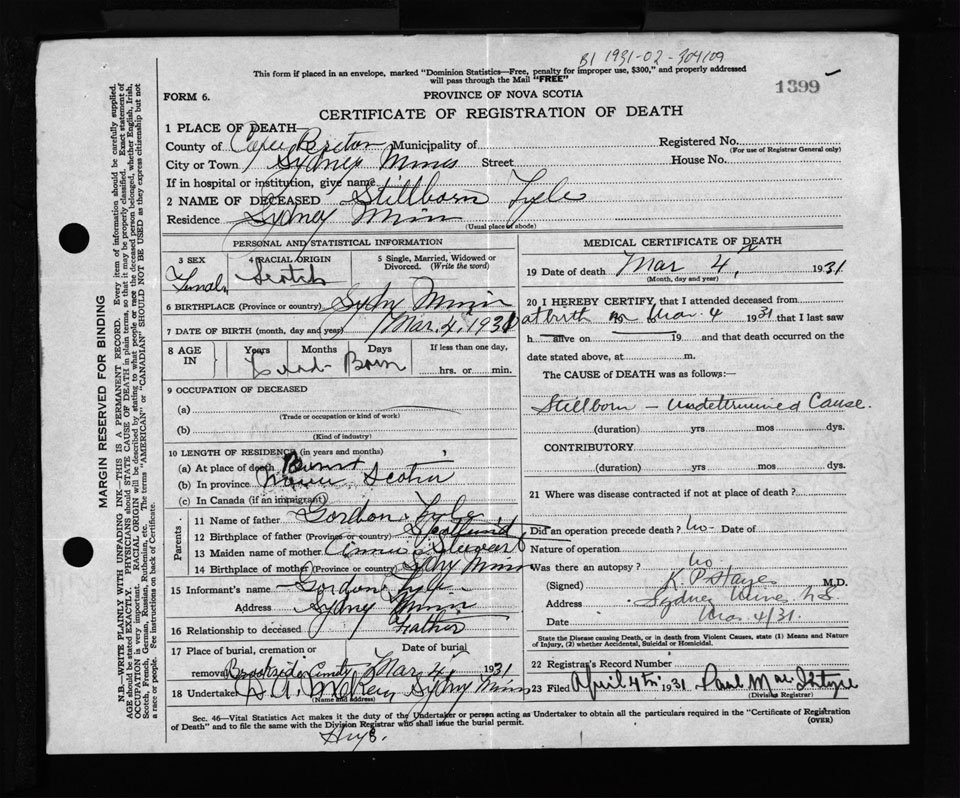 B1 1931-02-304109
This form if placed in an envelope, marked "Dominion Statistics—Free, penalty for improper use, $300," and properly addressed
will pass through the Mail "FREE"
1399
FORM 6.
PROVINCE OF NOVA SCOTIA
CERTIFICATE OF REGISTRATION OF DEATH
MARGIN RESERVED FOR BINDING
N.B.—WRITE PLAINLY WITH UNFADING INK—THIS IS A PERMANENT RECORD. Every item of information should be carefully supplied.
AGE should be stated EXACTLY. PHYSICIANS should STATE CAUSE OF DEATH in plain terms, so that it may be properly classified. Exact statement of
OCCUPATION is very important. RACIAL ORIGIN will be described by stating to what people or race the deceased person belonged, whether English, Irish,
Scotch, French, German, Russian, Ruthenian, etc. The terms "AMERICAN" or "CANADIAN" SHOULD NOT BE USED as they express citizenship but not
a race or people. See instructions on back of Certificate.
1 PLACE OF DEATH—
County of Cape Breton Municipality of Registered No.
(For use of Registrar General only)
City or Town Sydney Mines Street House No.
If in hospital or institution, give name
2 NAME OF DECEASED Stillborn Lyle
Residence Sydney Mines
(Usual place of abode)
PERSONAL AND STATISTICAL INFORMATION
3 SEX 4 RACIAL ORIGIN 5 Single, Married, Widowed or
Divorced. (Write the word)
Female Scotch
6 BIRTHPLACE (Province or country) Sydney Mines
7 DATE OF BIRTH (month, day and year) Mar. 4, 1931
8 AGE IN Years Months Days If less than one day,
Dead-Born hrs. or min.
9 OCCUPATION OF DECEASED
(a)
(Trade or occupation or kind of work)
(b)
(Kind of industry)
10 LENGTH OF RESIDENCE (in years and months)
(a) At place of death
(b) In province Nova Scotia
(c) In Canada (if an immigrant)
Parents
11 Name of father Gordon Lyle
12 Birthplace of father (Province or country) Scotland
13 Maiden name of mother Annie Stewart
14 Birthplace of mother (Province or country) Sydny Mines
15 Informant's name Gordon Lyle
Address Sydny Mines
16 Relationship to deceased Father
17 Place of burial, cremation or Date of burial
removal Brookside Cemety Mar 4, 1931
18 Undertaker Sydny Mines
(Name and address)
MEDICAL CERTIFICATE OF DEATH
19 Date of death Mar 4, 1931
(Month, day and year)
20 I HEREBY CERTIFY, that I attended deceased from
at birth to Mar. 4 1931 that I last saw
h alive on 19 and that death occurred on the
date stated above, at m.
The CAUSE of DEATH was as follows:—
Stillborn — Undetermined Cause.
(duration) yrs mos dys.
CONTRIBUTORY
(duration) yrs mos dys.
21 Where was disease contracted if not at place of death?
Did an operation precede death? no Date of
Nature of operation
Was there an autopsy? no
(Signed) K. P. Hayes M.D.
Address Sydney Mines N.S.
Date Mar 4/31.
State the Disease causing Death, or in death from Violent Causes, state (1) Means and Nature
of Injury, (2) whether Accidental, Suicidal or Homicidal.
22 Registrar's Record Number
23 Filed April 4th 1931 Paul
(Division Registrar)
Sec. 46—Vital Statistics Act makes it the duty of the Undertaker or person acting as Undertaker to obtain all the particulars required in the "Certificate of Registration
of Death" and to file the same with the Division Registrar who shall issue the burial permit.
(OVER)